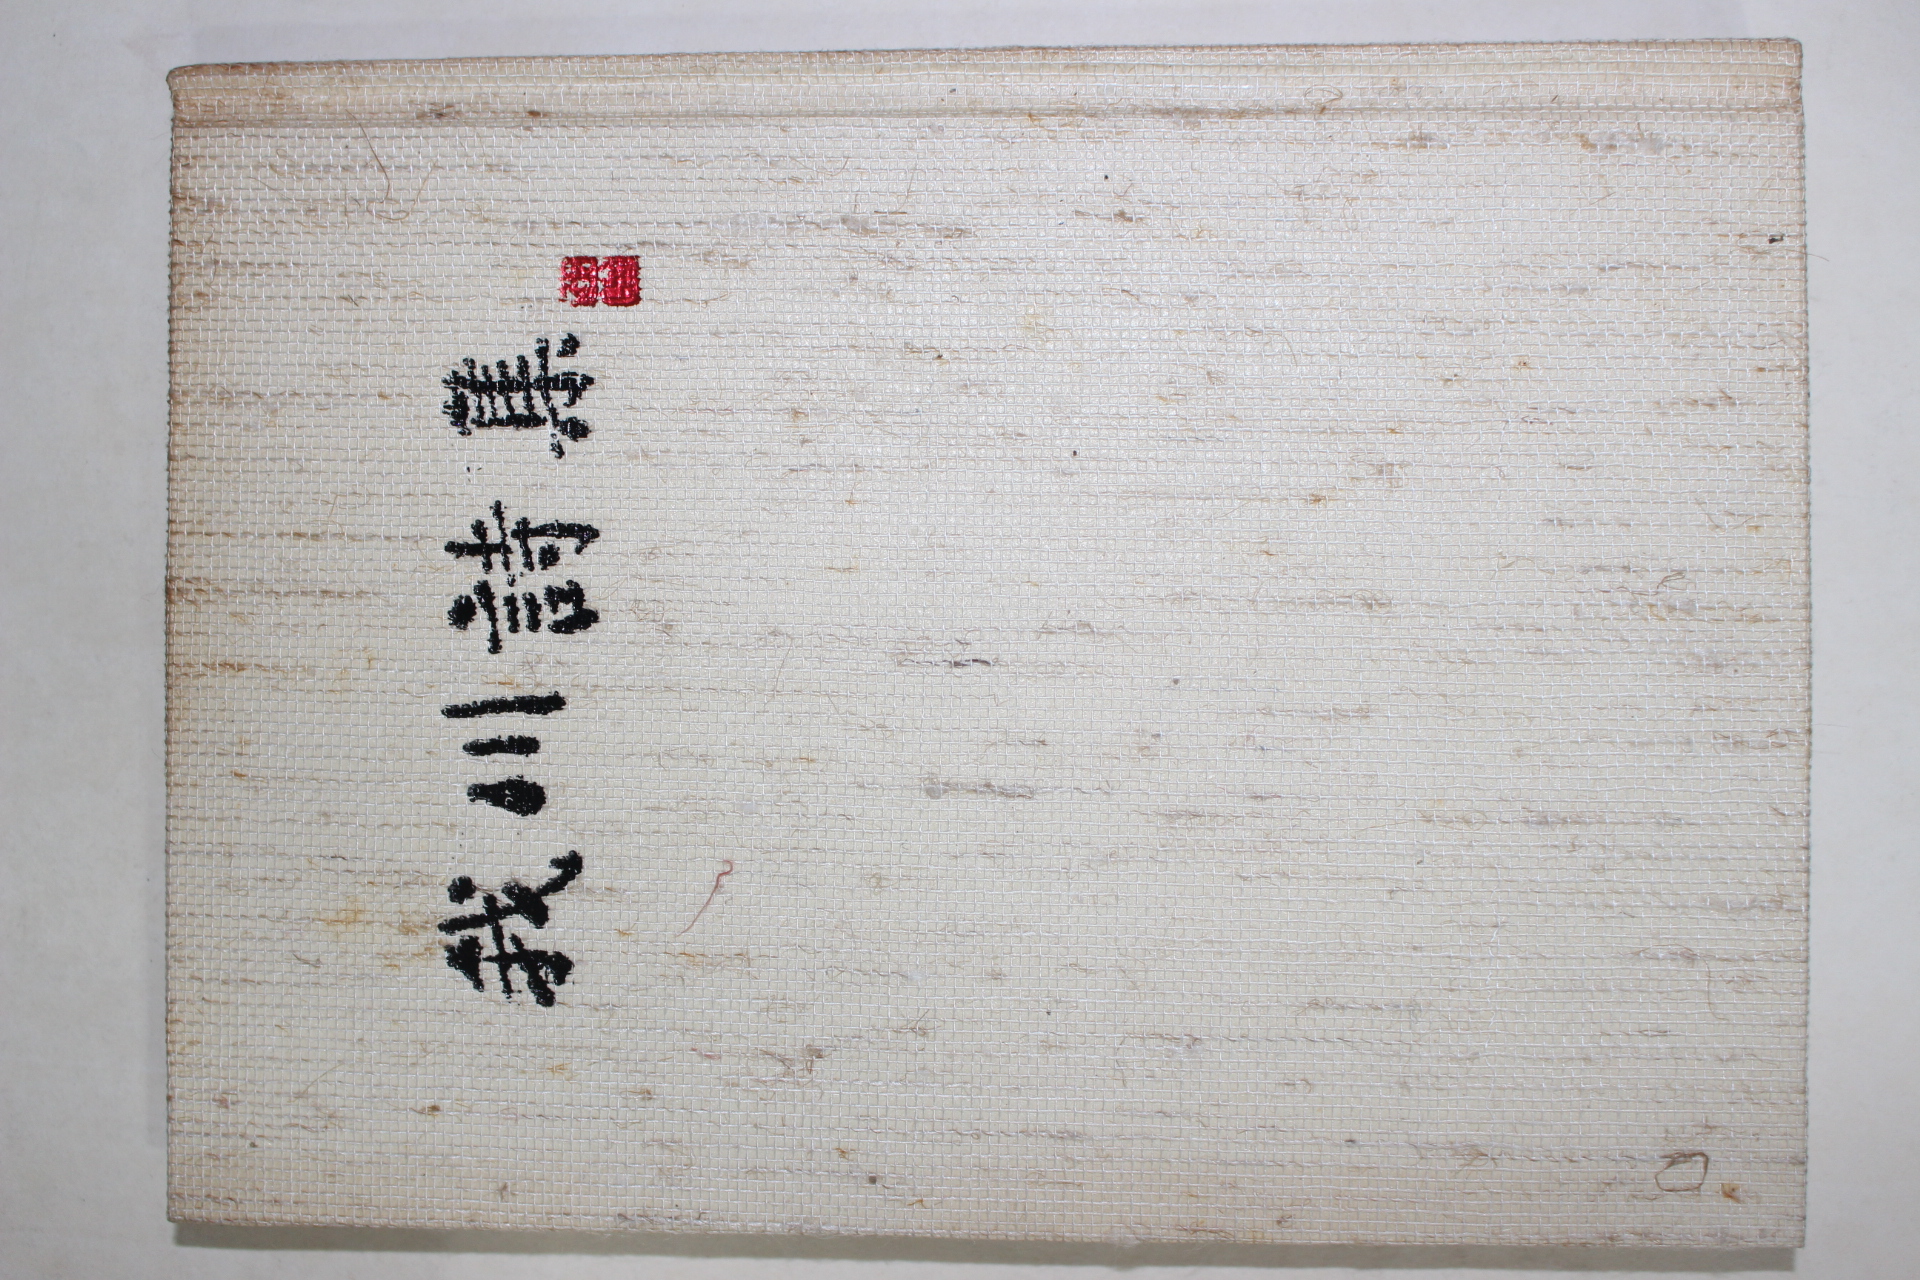 我川詩集